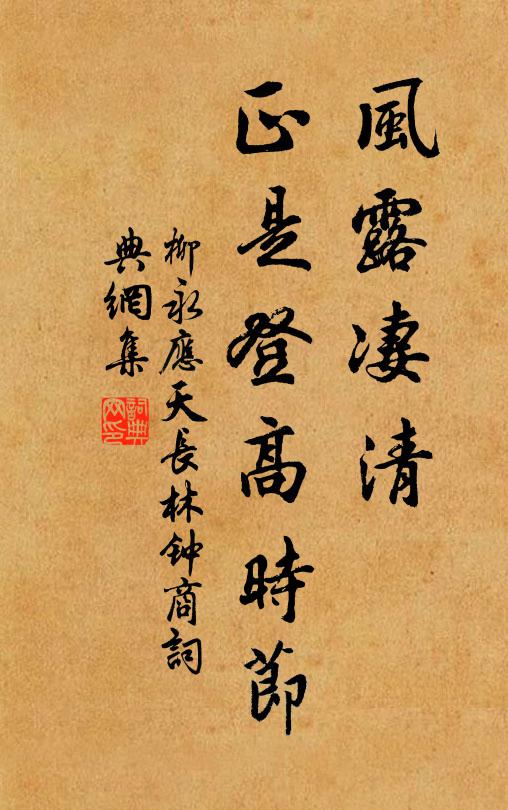 風露凄清
正是登高時節
柳永應天長林钟商詞
典網集
詞典
网印